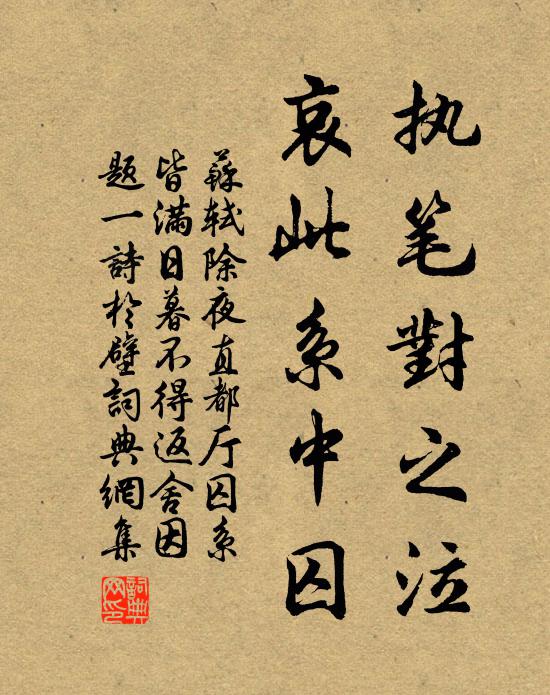 执笔對之泣
哀此系中囚
蘇轼除夜直都厅囚系
皆滿日暮不得返舍因
题一詩於壁詞典網集
詞典
网印